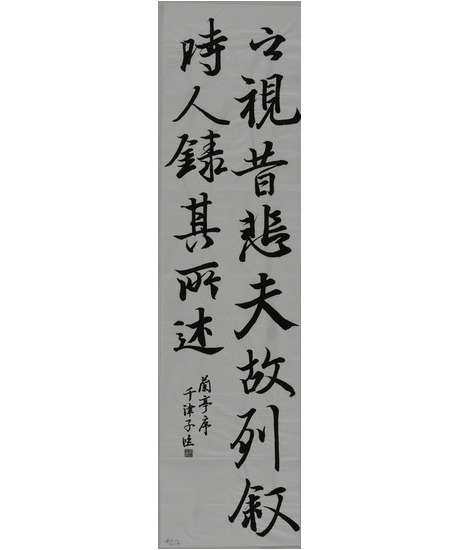 之視昔悲夫故列叙
時人錄其所述
蘭亭序
千津子臨